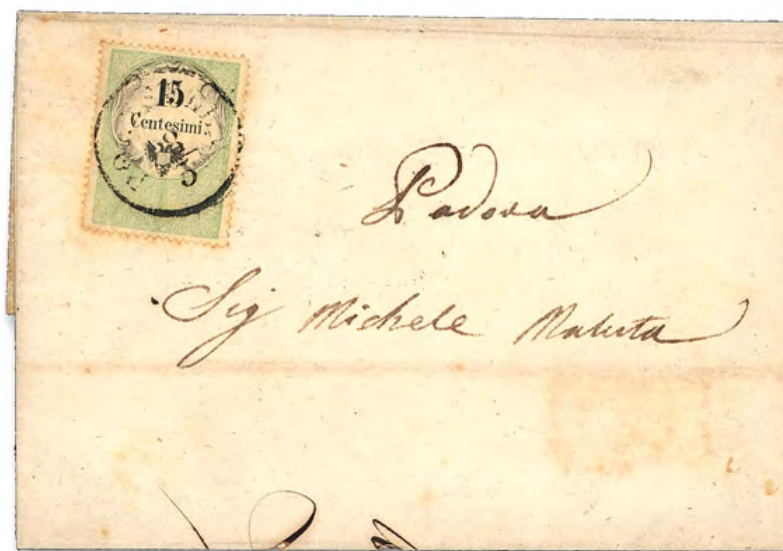 15
Centesimi
Padova
Sig Michele Maluta